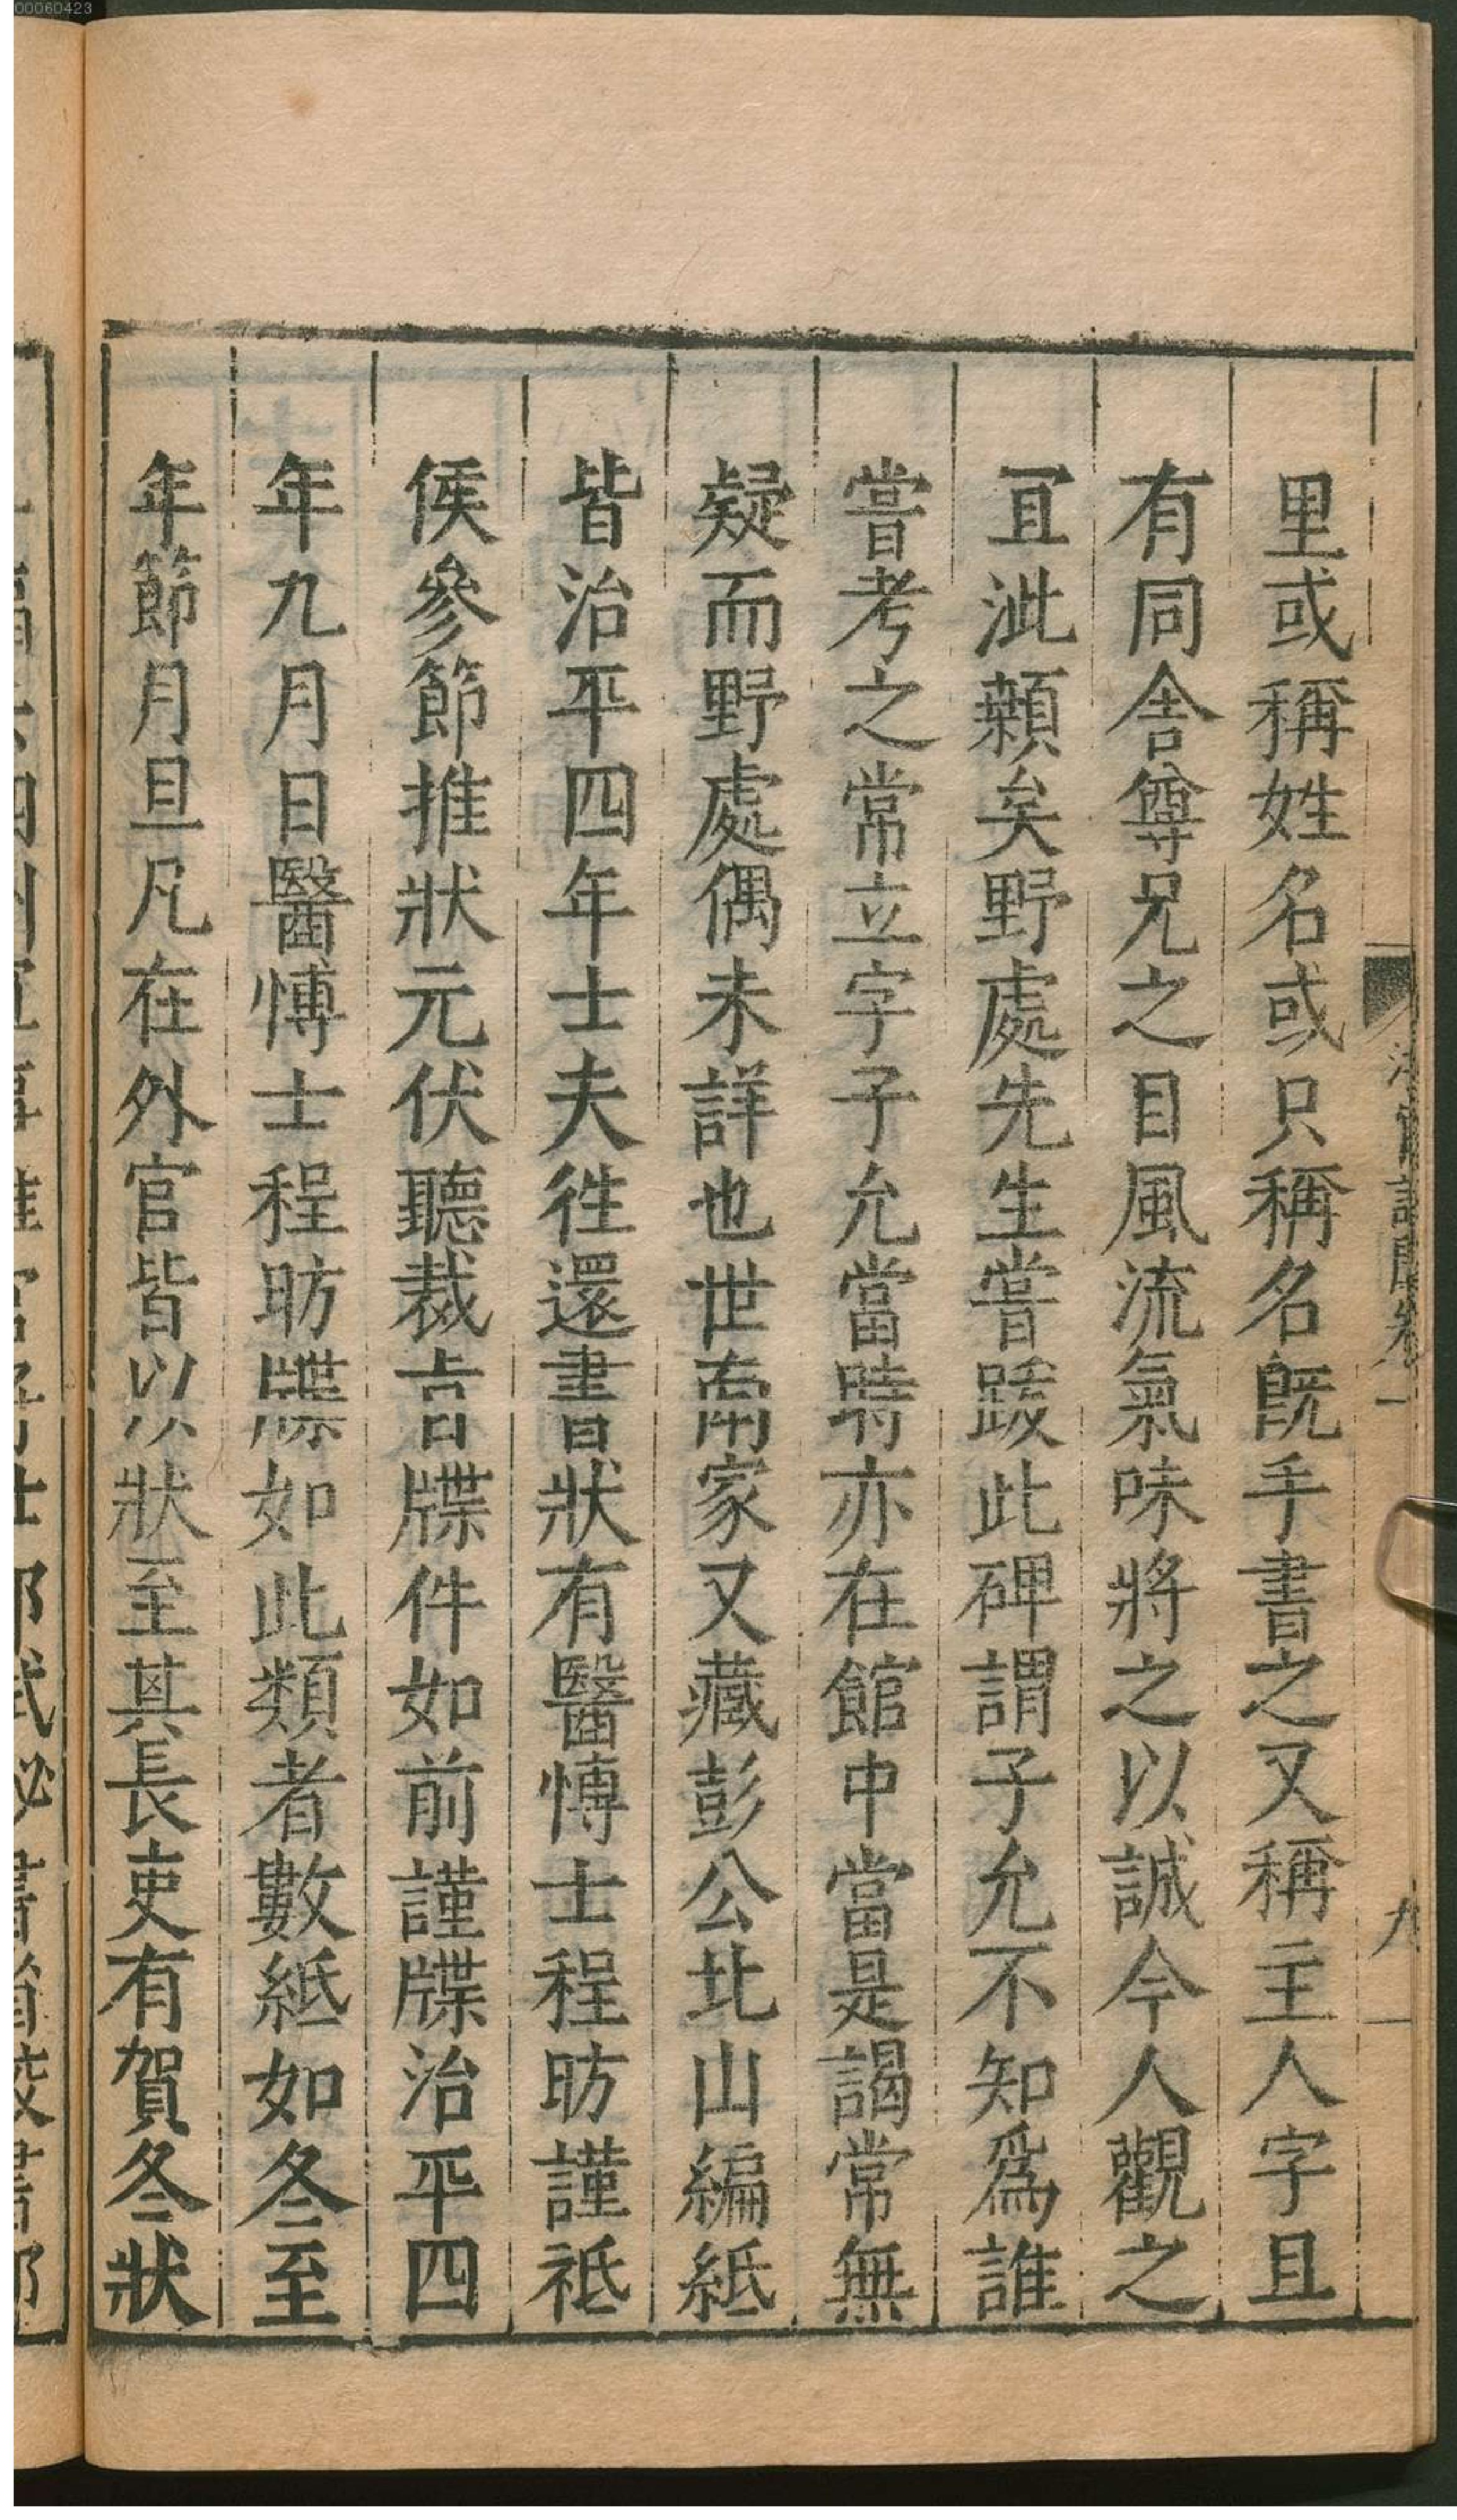 00060423
里或稱姓名或只稱名旣手書之又稱主人字且
有同舍尊兄之目風流氣味將之以誠今人觀之
冝泚顙矣野處先生嘗跋此碑謂子允不知爲誰
嘗考之常立字子允當時亦在館中當是謁常無
疑而野處偶未詳也世南家又藏彭公北山編紙
皆治平四年士夫徃還書狀有醫愽士程昉謹祗
候參節推狀元伏聽裁旨牒件如前謹牒治平四
年九月日醫愽士程昉牒如此類者數紙如冬至
年節月旦凡在外官皆以狀至其長吏有賀冬狀
卷一
九